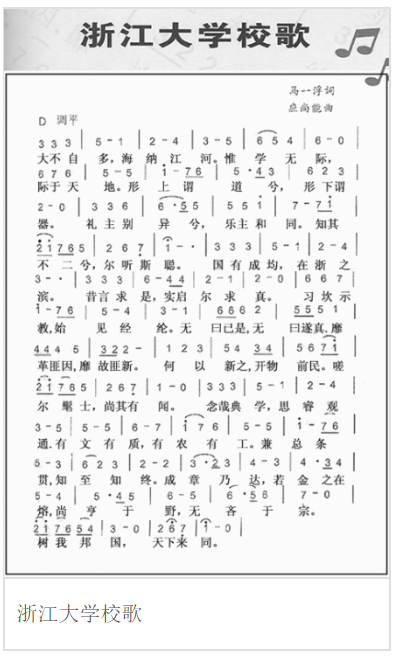 浙江大学校歌
马一浮词
应尚能曲
D 调平
3 3 3 | 5 - 1 | 2 - 4 | 3 - 5 | 6 5 4 | 6 - 0
大不自多,海纳江河。惟学无际,
6 7 6 | 5 - 5 | i - 7 6 | 5 · 4 3 | 6 2 3
际于天地。形上谓道兮,形下谓
2 - 0 | 3 3 6 | 6 · 5 5 | 5 5 i | 7 - 7 i
器。礼主别异兮,乐主和同。知其
2 i 7 6 5 | 2 6 7 | i - · | 3 3 3 | 5 - 1 | 2 - 4
不二兮,尔听斯聪。国有成均,在浙之
3 - · | 3 3 3 | 6 - 4 4 | 2 - 1 | 2 0 | 6 6 7
滨。昔言求是,实启尔求真。习坎示
i - 7 6 | 5 - 4 | 3 - 1 | 6 6 6 2 | 5 5 5 1
教,始见经纶。无曰已是,无曰遂真,靡
4 4 4 5 | 3 2 2 - | 1 2 3 | 5 4 3 4 | 5 6 7 i
革匪因,靡故匪新。何以新之,开物前民。嗟
2 i 7 6 5 | 2 6 7 | i - 0 | 3 3 3 | 5 - 1 | 2 - 4
尔髦士,尚其有闻。念哉典学,思睿观
3 - 5 | 5 - 5 | 6 - 7 | i 7 6 | 5 - 5 | i - 7 6
通.有文有质,有农有工。兼总条
5 - 3 | 6 2 3 | 2 - 2 | 3 · 2 3 | 4 - 3 | 4 · 3 4
贯,知至知终。成章乃达,若金之在
5 - 4 | 5 · 4 5 | 6 - 5 | 6 · 5 6 | 7 - 0
熔,尚亨于野,无吝于宗。
2 i 7 6 5 4 | 3 - 0 | 2 6 7 | i - 0
树我邦国,天下来同。
浙江大学校歌